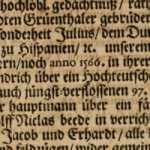 hochlobl. gedächtnuß/
ten Gruenthaler gebrüder
sonderheit Julius/ dem Du
zu Hispanien/ ꝛc. unserem
ern/ noch anno 1566. in ihrer
ndrich über ein Hochteutsche
auch jüngst-verflossenen 97.
r hauptmann über ein fä
lff Niclas beede in verrich
Jacob und Erhardt/ alle